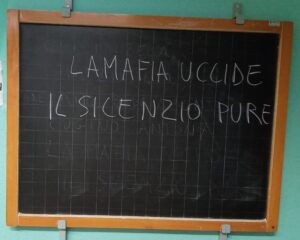 LA MAFIA UCCIDE
IL SICENZIO PURE